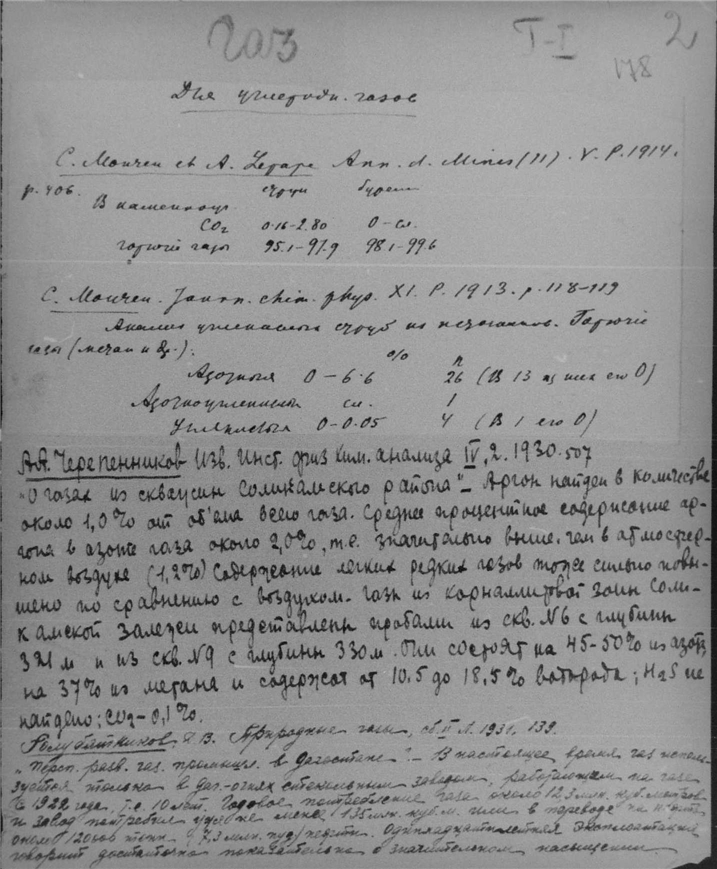 Газ
Т-I
2
178
Для углеродн. газов
С. Мoureu et A. Lepape Ann. d. Mines (11). V. P. 1914.
p. 406.
струи бурен
В каменноуг.
CO2 0.16-2.80 0-сл.
горючіе газы 95.1-97.9 98.1-99.6
С. Мoureu. Journ. chim. phys. XI. P. 1913. p. 118-119
Анализ углекислых струй из источников. Горючіе
газы (метан и др.):
% n
Азотныя 0-6.6 26 (В 13 из них его 0)
Азотноуглекислыя сл. 1
Углекислыя 0-0.05 4 (В 1 его 0)
А.А. Черепенников Изв. Инст. физ хим. анализа IV, 2. 1930. 507
"О газах из скважин Соликамского района" - Аргон найден в количестве
около 1,0% от об'ема всего газа. Среднее процентное содержание ар-
гона в азоте газа около 2,0%, т.е. значительно выше, чем в атмосфер-
ном воздухе (1,2%) Содержание легких редких газов тоже сильно повы-
шено по сравнению с воздухом. Газы из карналлитовой зоны Соли-
камской залежи представлены пробами из скв. N6 с глубины
321 м и из скв. N9 с глубины 330 м. Они состоят на 45-50% из азота,
на 37% из метана и содержат от 10,5 до 18,5% водорода; H2S не
найдено; CO2-0,1%.
Голубятников Д.В. Природные газы, сб. II Л. 1931, 139.
"Персп. разв. газ. промышл. в Дагестане". - В настоящее время газ исполь-
зуется только в Даг-огнях стекольным заводом, работающем на газе
с 1922 года, т.е. 10 лет. Годовое потребление газа около 12,3 млн. куб. метров
и завод потребил уже не менее 135 млн. куб. м. или в переводе на
около 120000 тонн (7,3 млн. пуд) нефти. Одиннадцатилетняя эксплоатация
говорит достаточно показательно о значительном насыщении